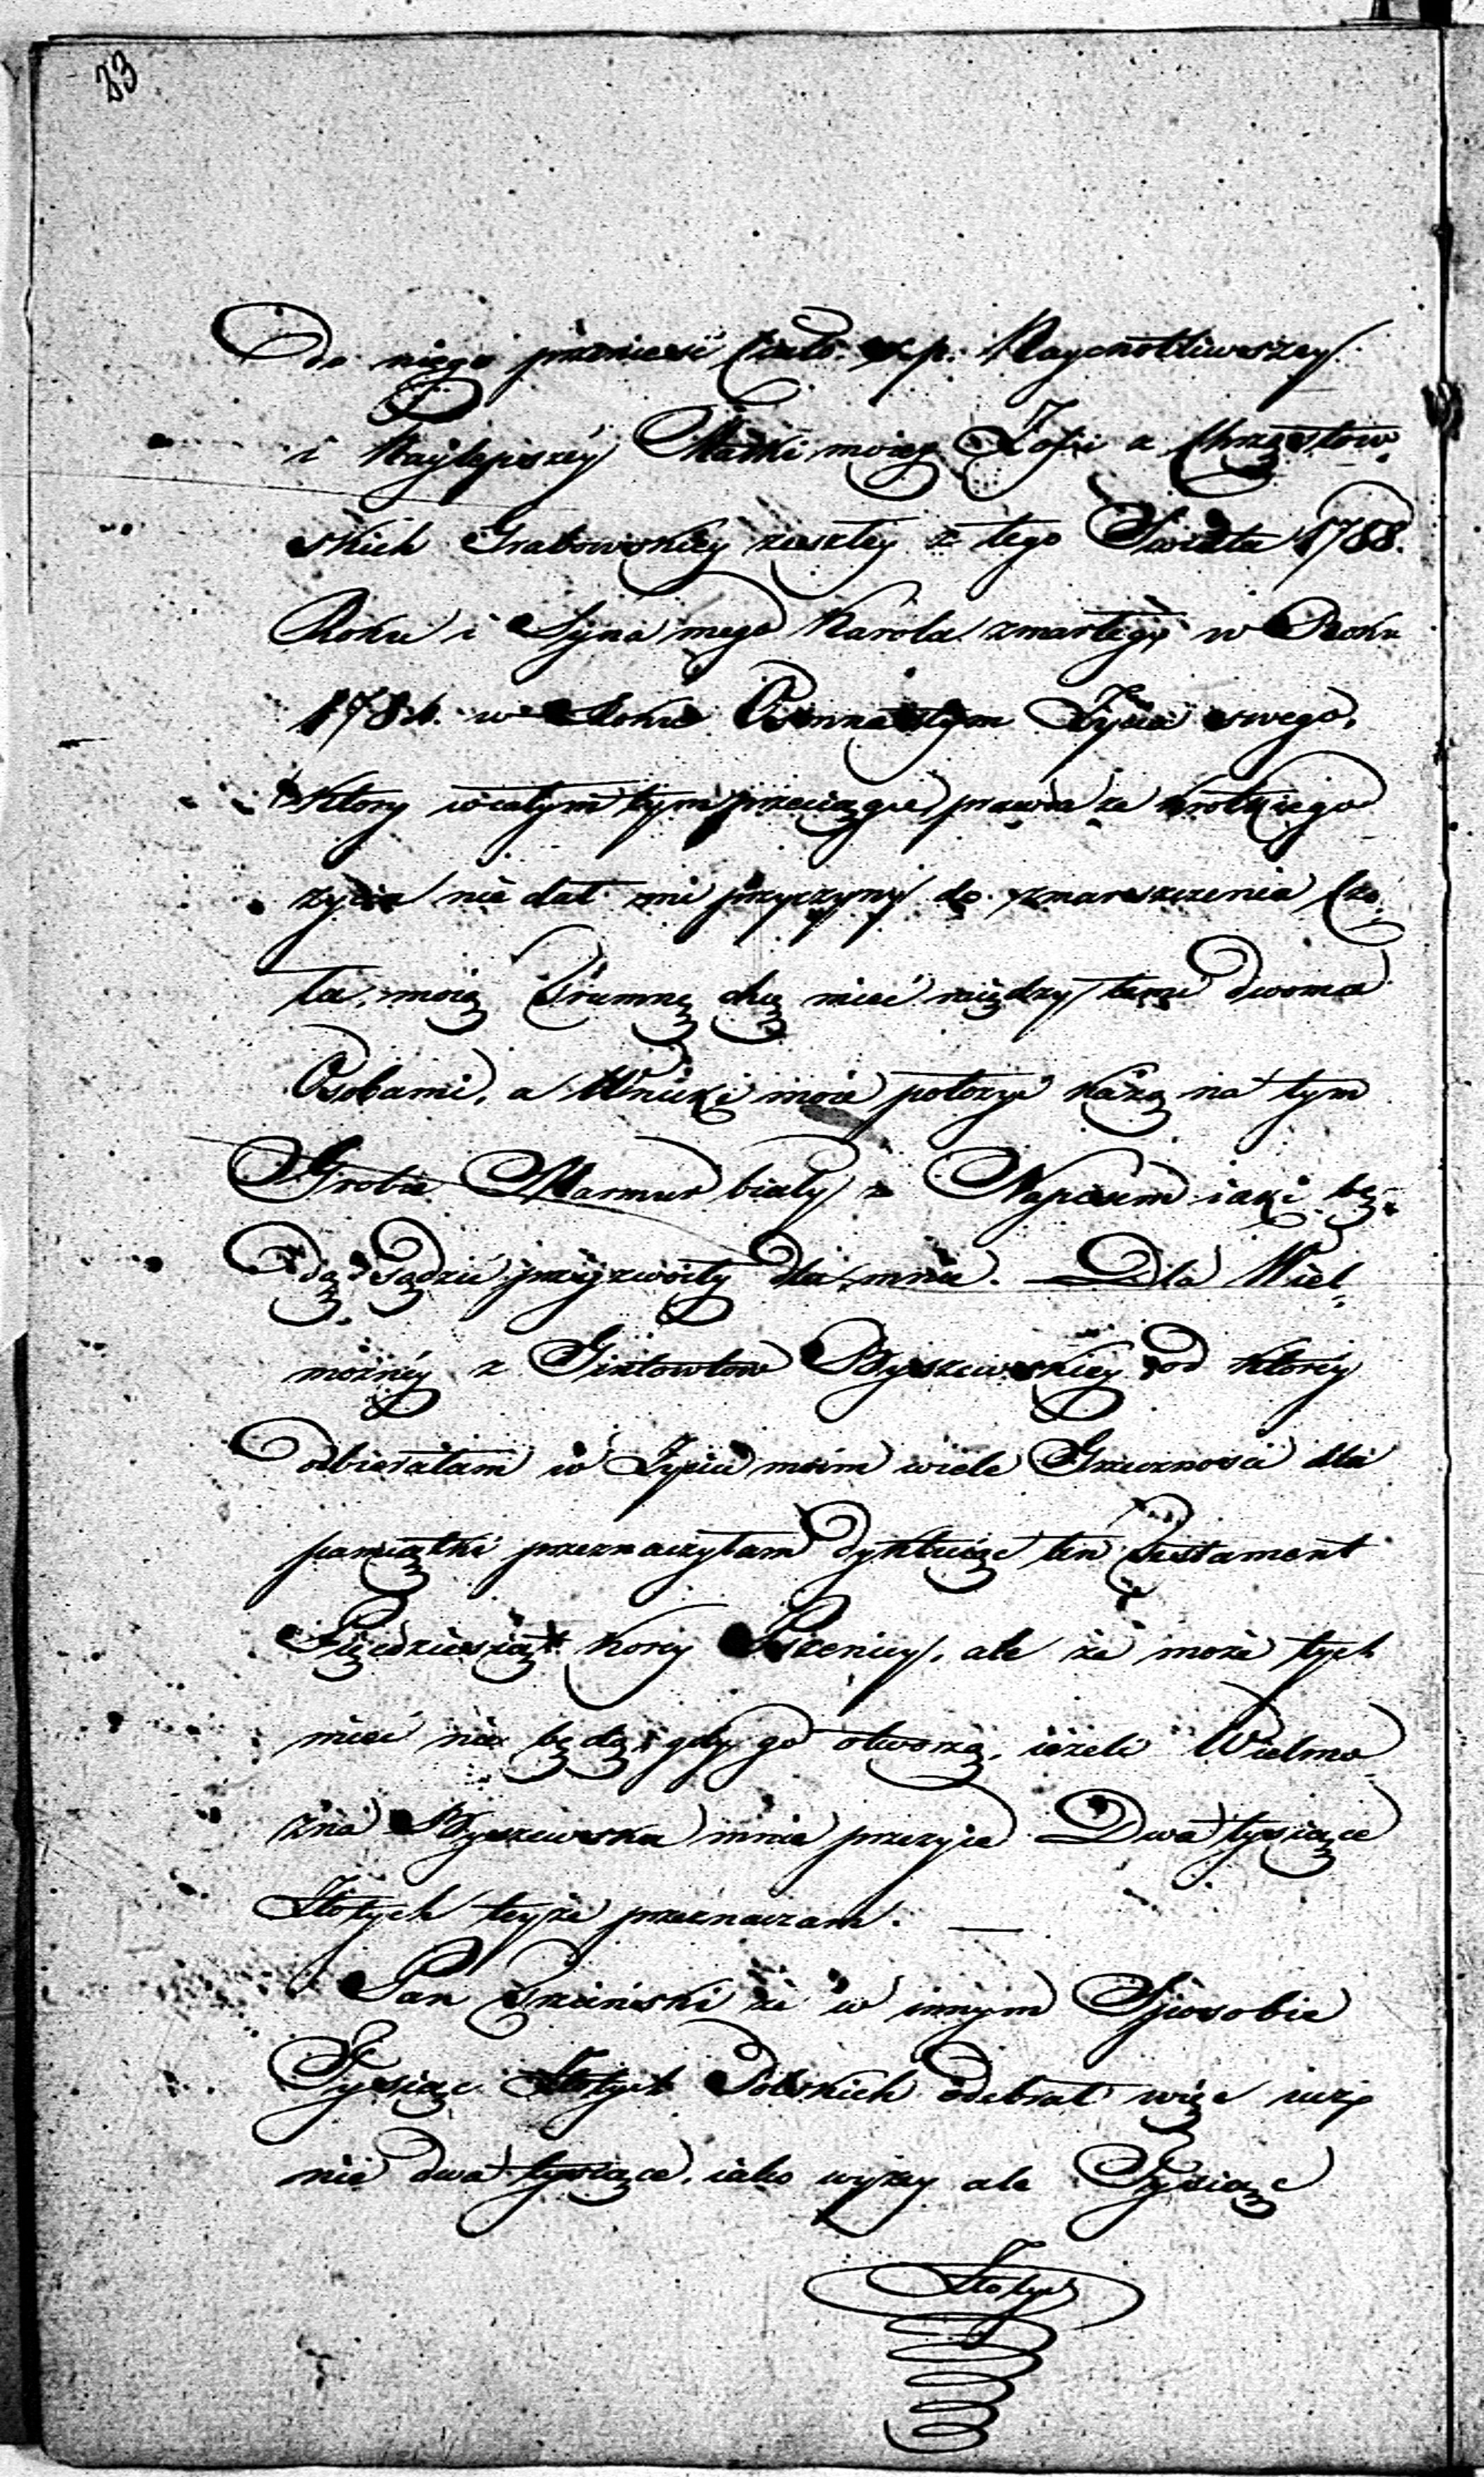 23
do niego przenieść Ciało ś. p. Naycnotliwszey
i Naylepszéy Matki moiey Zofii z Chrząstow-
skich Grabowskiey zeszłey z tego Swiata 1788.
Roku i Syna mego Karola zmarłego w Roku
w Roku Osmnastym Życia swego,
ktory w całym tym przeciągu prawda że krotkiego
życia nie dał mi przyczyny do zmarszczenia Czo-
ła, moią Trumnę chcę mieć między temi dwoma
Osobami, a Wnuki moie położyć każą na tym
Grobie Marmur biały z Napisem iaki bę-
dą sądzić przyzwoity dla mnie. — Dla Wiel-
możnéy z Gintowtow Byszewskiey od ktoréy
odbierałam w Życiu moim wiele Grzeczności dla
pamiątki przeznaczyłam dyktuiąc ten Testament
Pięćdziesiąt Korcy Pszenicy, ale że może tych
mieć nie będą gdy go otworzą, ieżeli Wielmo-
żna Byszewska mnie przeżyie Dwa tysiące
Złotych teyże przeznaczam. —
Pan że w innym Sposobie
Tysiąc Złotych Polskich odebrał więc iuż
nie dwa tysiące, iako wyżey ale Tysiąc
Złotych